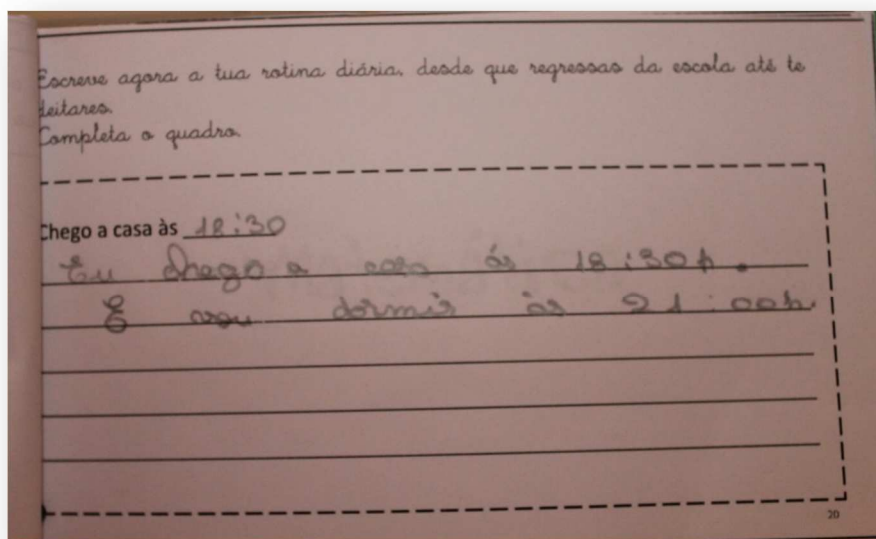 Escreve agora a tua rotina diária, desde que regressas da escola até te
deitares.
Completa o quadro.
Chego a casa às 18:30
Eu chego a casa ás 18:30h.
E vou dormir às 21:00h.
20